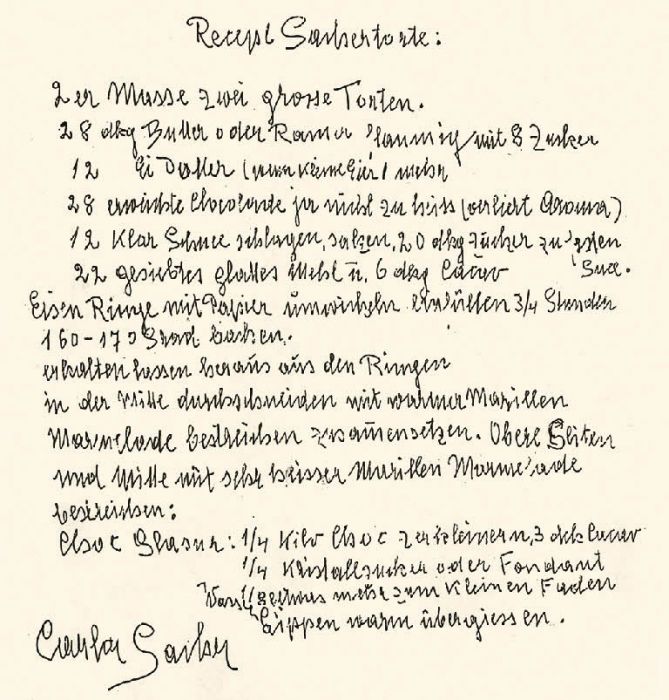 Recept Sachertorte:
2er Masse zwei grosse Torten.
28 dkg Butter oder Rama flaumig mit 8 Zucker
12 Ei Dotter (wenn kleine Eier) mehr
28 erweichte Chocolade ja nicht zu heiss (verliert Aroma)
12 Klar Schnee schlagen, salzen, 20 dkg Zucker zu
22 gesiebtes glattes Mehl ü. 6 dkg Cacao
Eisen Ringe mit Papier umwickeln einfüllen 3/4 Stunden
160-170 Grad backen.
erkalten lassen heraus aus den Ringen
in der Mitte durchschneiden mit warmer Marillen
Marmelade bestreichen zusammensetzen. Obere Seiten
und Mitte mit sehr heisser Marillen Marmelade
bestreichen:
Choc Glasur: 1/4 Kilo Choc zerkleinern, 3 dek Cacao
1/4 Kristallzucker oder Fondant
etwas mehr zum kleinen Faden
Lippen warm übergiessen.
Carla Sacher